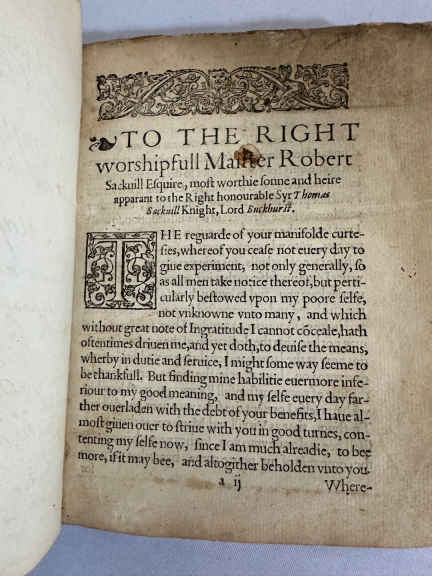 TO THE RIGHT
worshipfull Maiſter Robert
Sackuill Eſquire, moſt worthie ſonne and heire
apparant to the Right honourable Syr Thomas
Sackuill Knight, Lord Buckhurſt.
THE reguarde of your manifolde curte-
ſies, whereof you ceaſe not euery day to
giue experiment, not only generally, ſo
as all men take notice thereof, but perti-
cularly beſtowed vpon my poore ſelfe,
not vnknowne vnto many, and which
without great note of Ingratitude I cannot cōceale, hath
oftentimes driuen me, and yet doth, to deuiſe the means,
wherby in dutie and ſeruice, I might ſome way ſeeme to
be thankfull. But finding mine habilitie euermore infe-
riour to my good meaning, and my ſelfe euery day far-
ther ouerladen with the debt of your benefits, I haue al-
moſt giuen ouer to ſtriue with you in good turnes, con-
tenting my ſelfe now, ſince I am much alreadie, to bee
more, if it may bee, and altogither beholden vnto you.
a ij Where-